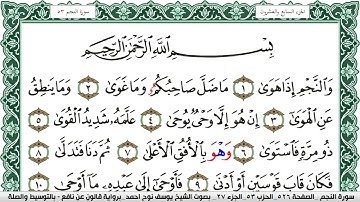 الجزء السابع والعشرون
سورة النجم ٥٣
بِسْمِ اللَّهِ الرَّحْمَٰنِ الرَّحِيمِ
وَالنَّجْمِ إِذَا هَوَىٰ ١ مَا ضَلَّ صَاحِبُكُمْ وَمَا غَوَىٰ ٢ وَمَا يَنطِقُ
عَنِ الْهَوَىٰ ٣ إِنْ هُوَ إِلَّا وَحْيٌ يُوحَىٰ ٤ عَلَّمَهُ شَدِيدُ الْقُوَىٰ ٥
ذُو مِرَّةٍ فَاسْتَوَىٰ ٦ وَهْوَ بِالْأُفُقِ الْأَعْلَىٰ ٧ ثُمَّ دَنَا فَتَدَلَّىٰ ٨
فَكَانَ قَابَ قَوْسَيْنِ أَوْ أَدْنَىٰ ٩ فَأَوْحَىٰ إِلَىٰ عَبْدِهِ مَا أَوْحَىٰ ١٠
سورة النجم الصفحة ٥٢٦ الحزب ٥٣ الجزء ٢٧ بصوت الشيخ يوسف نوح احمد - برواية قالون عن نافع - بالتوسيط والصلة